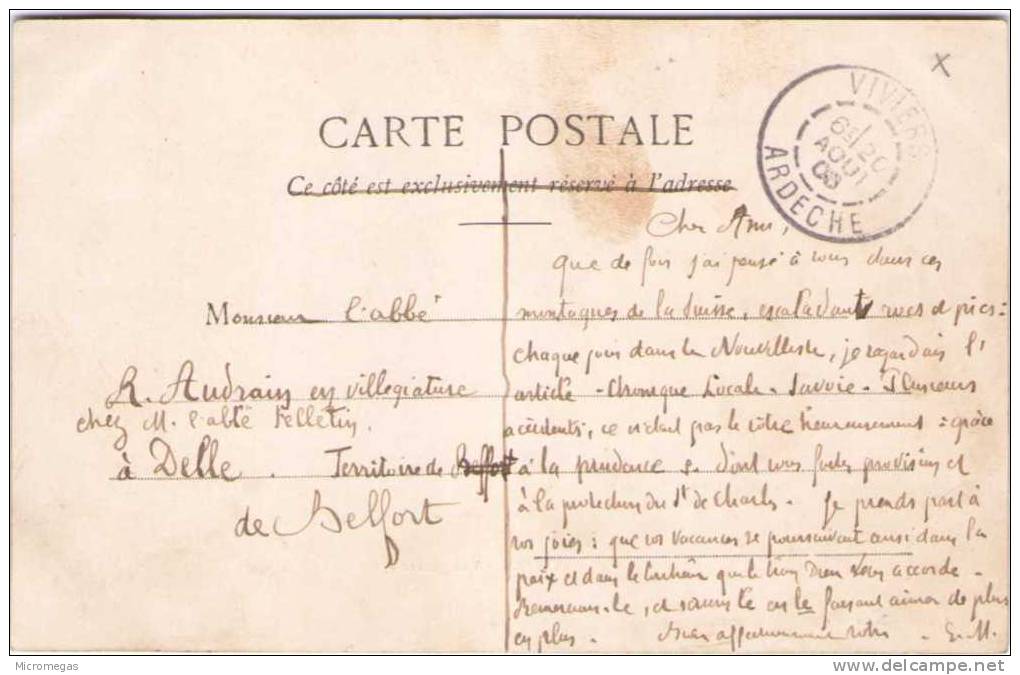 CARTE POSTALE
Ce côté est exclusivement réservé à l'adresse
VIVIERS
6E/20
AOUT
ARDECHE
Monsieur l'abbé
R. Audrain en villegiature
chez M. l'abbé Felletin.
à Delle. Territoire de Belfort
de Belfort
Cher Ami,
que de fois j'ai pensé à vous dans ces
montagnes de la Suisse, escaladant rocs et pics:
chaque jour dans le Nouvelliste, je regardais l'
article - Chronique Locale - Savoie - Plusieurs
accidents, ce n'était pas le vôtre heureusement: grâce
à la prudence dont vous faites provision et
à la protection du St de Charles. Je prends part à
vos joies: que vos vacances se poursuivent ainsi dans la
paix et dans le bonheur que le bon Dieu vous accorde.
Remercions-le, et servons le en le faisant aimer de plus
en plus. Bien affectueusement vôtre. E. M.
Micromegas
delcampe.net